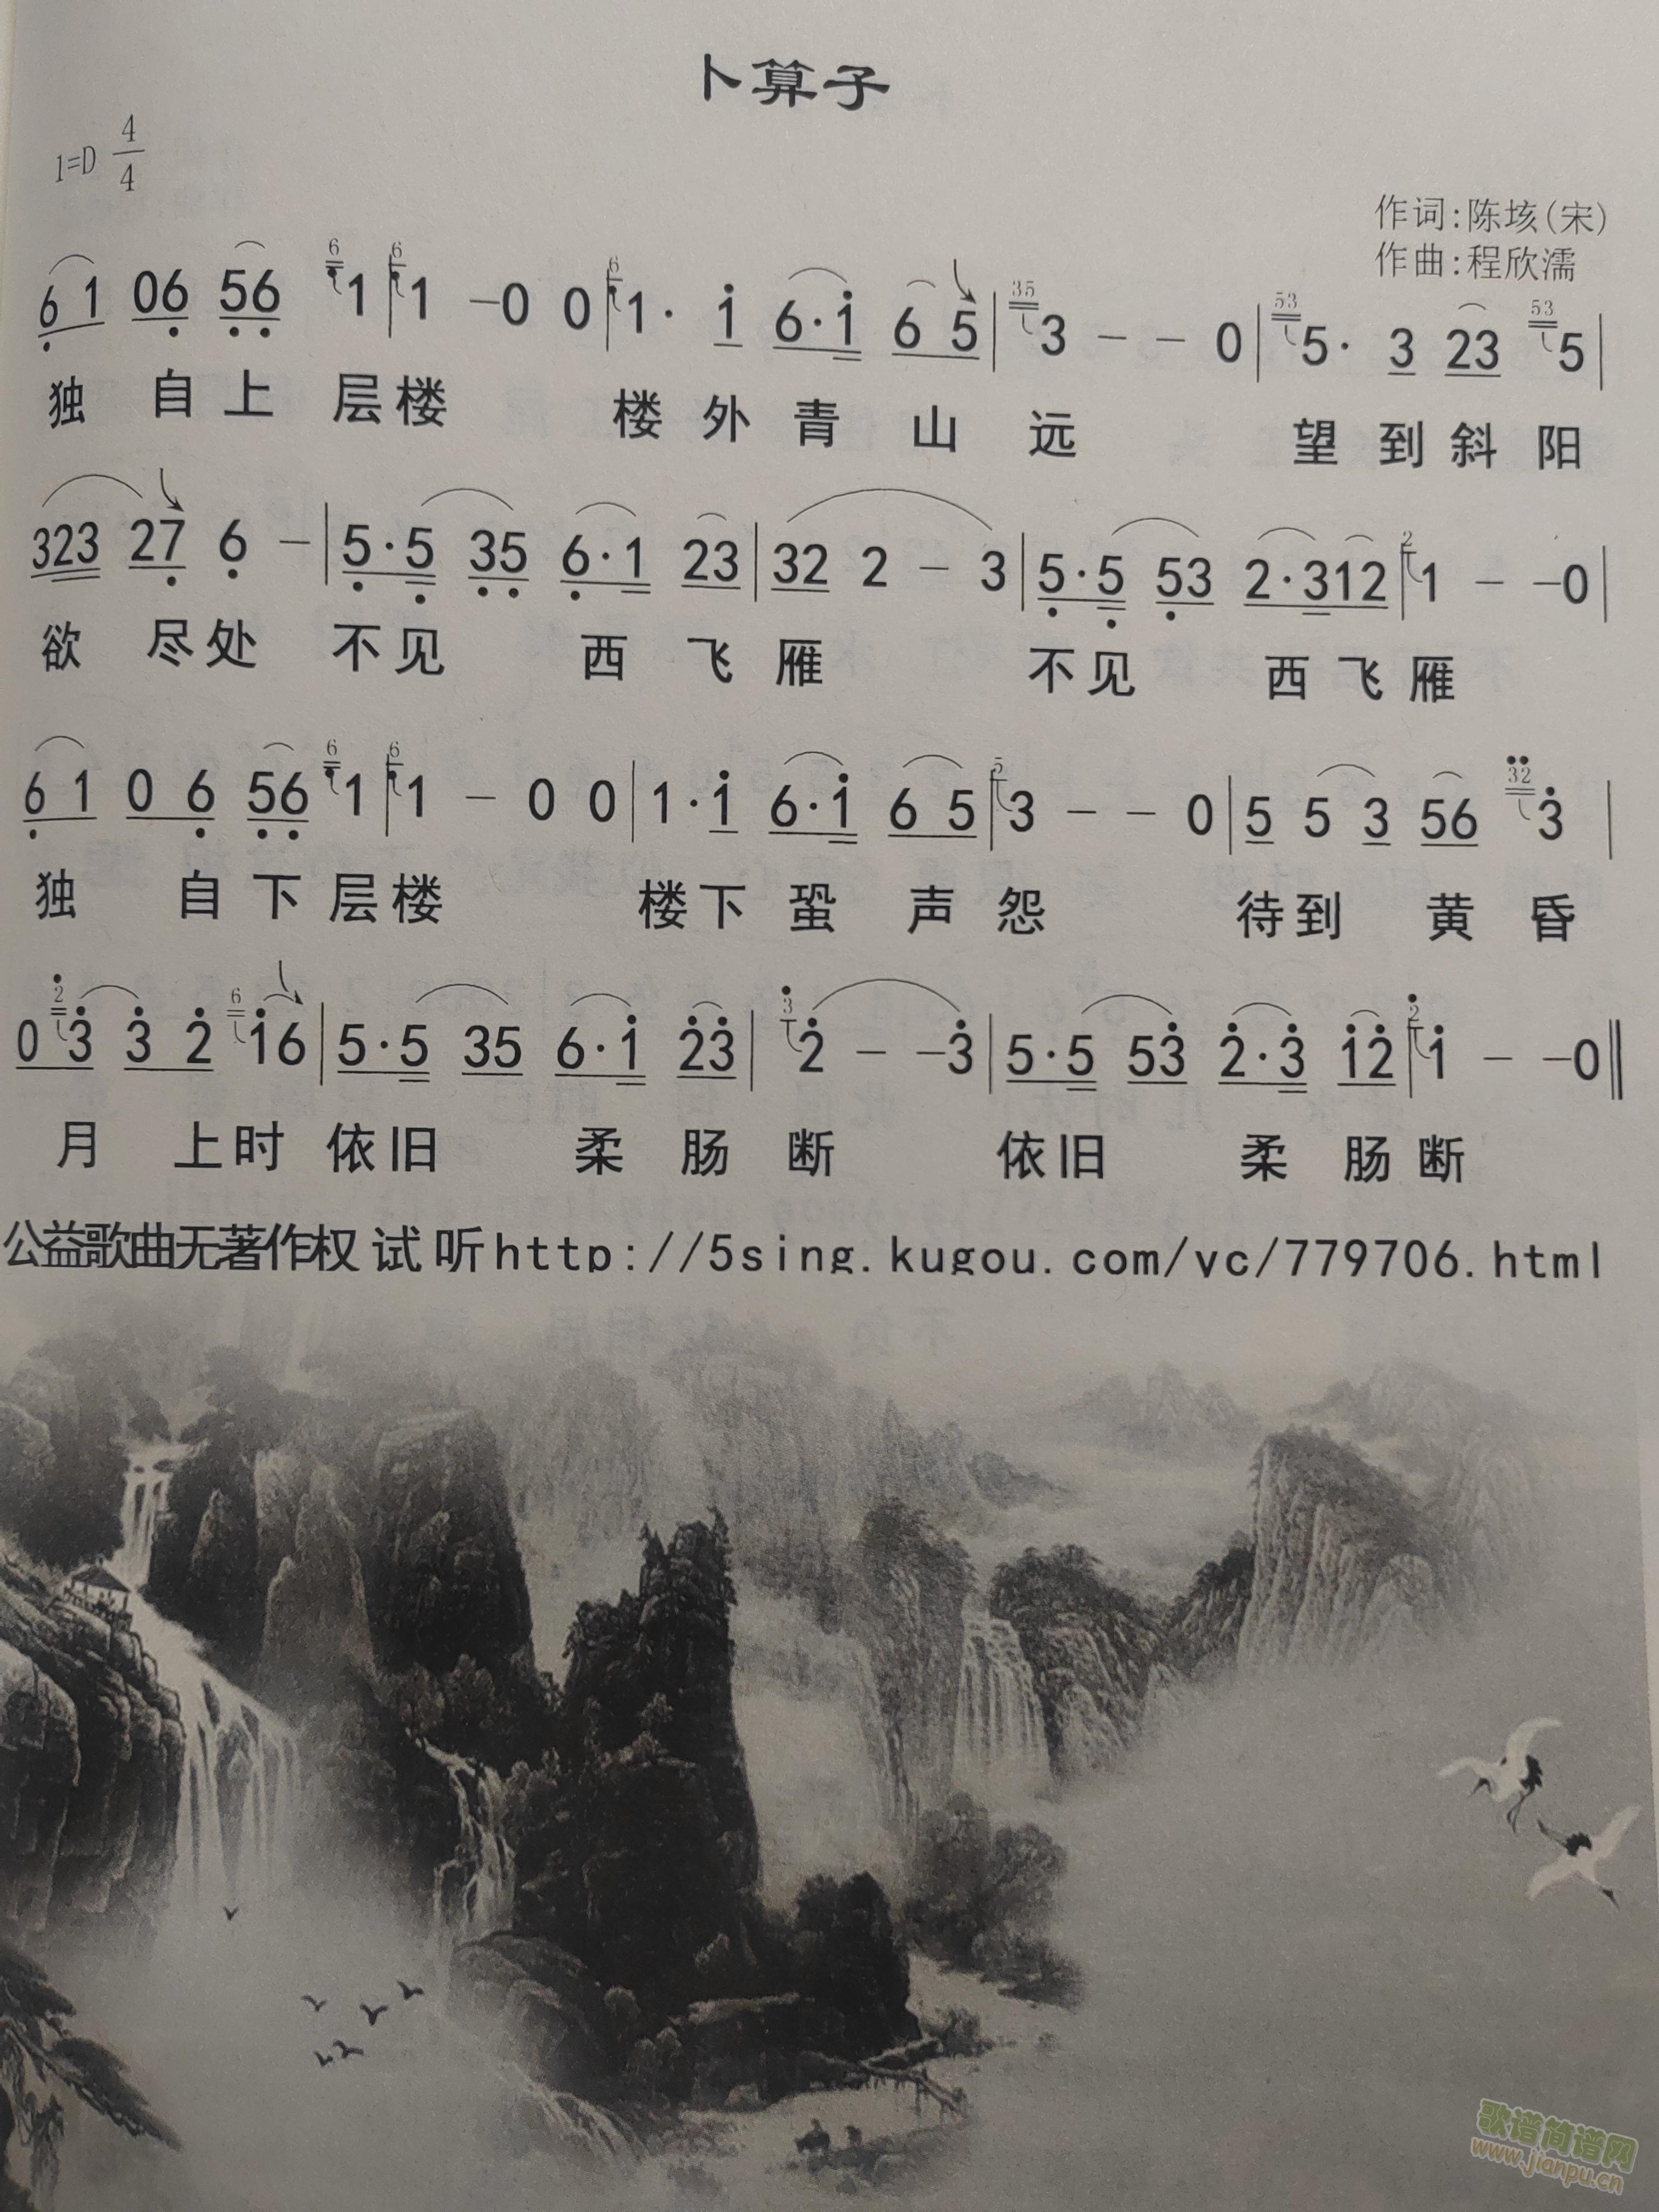 卜算子
1=D 4/4
作词:陈垓(宋)
作曲:程欣濡
6 1 06 56 6 1 | 6 1 -0 0 | 6 1· 1 6·1 6 5 | 35 3 - - 0 | 53 5· 3 23 53 5 |
独 自上 层楼 楼 外 青 山 远 望 到 斜 阳
323 27 6 - | 5·5 35 6·1 23 | 32 2 - 3 | 5·5 53 2·312 | 2 1 - -0 |
欲 尽处 不见 西 飞 雁 不见 西飞雁
6 1 0 6 56 6 1 | 6 1 - 0 0 | 1·1 6·1 6 5 | 5 3 - - 0 | 5 5 3 56 32 3 |
独 自下层楼 楼下 蛩 声 怨 待到 黄 昏
0 2 3 3 2 6 16 | 5·5 35 6·1 23 | 3 2 - -3 | 5·5 53 2·3 12 | 2 1 - -0 ‖
月 上时 依旧 柔 肠 断 依旧 柔 肠断
公益歌曲无著作权 试 听http://5sing.kugou.com/yc/779706.html
歌谱简谱网
www.jianpu.cn